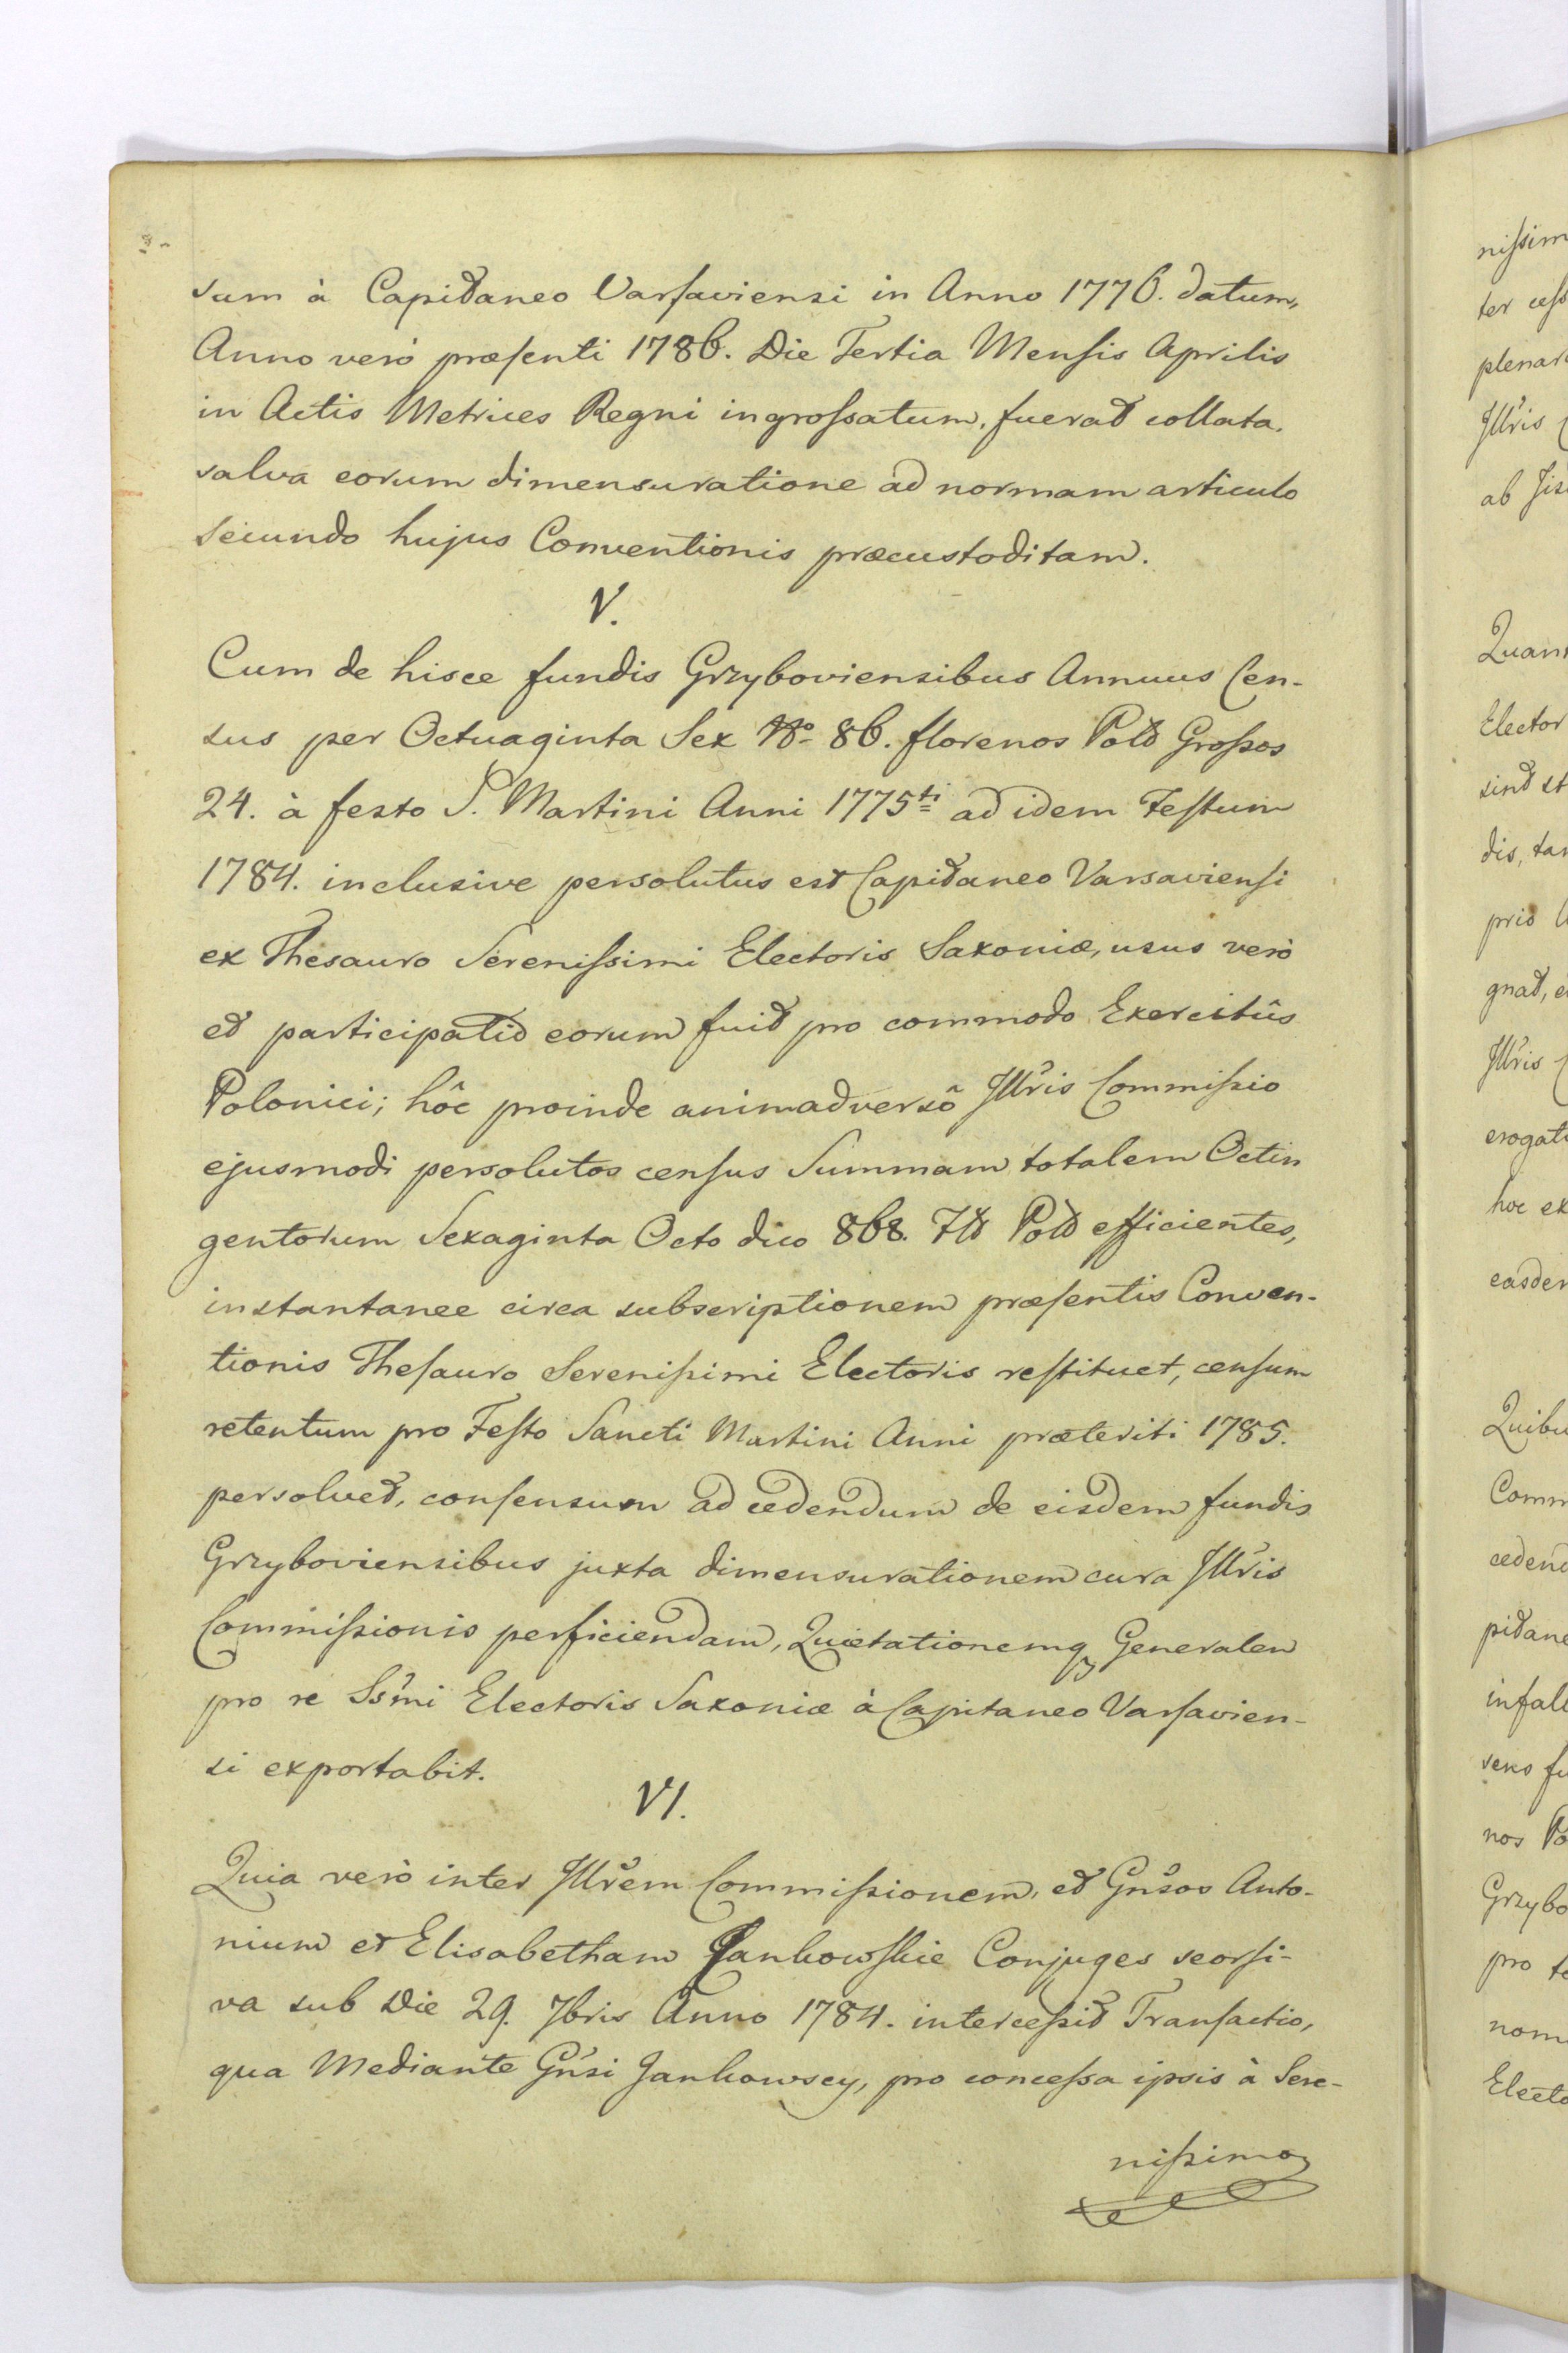 sum à Capitaneo Varsaviensi in Anno 1776. datum,
Anno verò præsenti 1786. Die Tertia Mensis Aprilis
in Actis Metrices Regni ingrossatum, fuerat collata.
salva eorum dimensuratione ad normam articulo
secundo hujus Conventionis præcustoditam.
V.
Cum de hisce fundis Grzyboviensibus Annuus Cen-
sus per Octuaginta Sex No 86. florenos Pol Grossos
24. à festo S. Martini Anni 1775ti ad idem Festum
1784. inclusive persolutus est Capitaneo Varsaviensi
ex Thesauro Serenissimi Electoris Saxoniæ, usus verò
et participatio eorum fuit pro commodo Exercitûs
Polonici; hôc proinde animadversô Illris Commissio
ejusmodi persolutos census Summam totalem Octin
gentorum Sexaginta Octo dico 868. Fl Pol efficientes,
instantanee circa subscriptionem præsentis Conven-
tionis Thesauro Serenissimi Electoris restituet, censum
retentum pro Festo Sancti Martini Anni præteriti 1785.
persolvet, consensum ad cedendum de eisdem fundis
Grzyboviensibus juxta dimensurationem cura Illris
Commissionis perficiendam, Quietationemq Generalem
pro re Ssmi Electoris Saxoniæ à Capitaneo Varsavien-
si exportabit.
VI.
Quia verò inter Illrem Commissionem, et Gnsos Anto-
nium et Elisabetham Jankowskie Conjuges seorsi-
va sub Die 29. 7bris Anno 1784. intercessit Transactio,
qua Mediante Gnsi Jankowscy, pro concessa ipsis à Sere-
nissimo
nissim
ter cess
plenar
Illris
ab
Quan
Elector
sint st
dis, tan
prio
gnat, e
Illris
erogat
hoc ex
easdem
Quibu
Comm
cedend
pitane
infall
sens fu
nos Po
Grzybo
pro te
nom
Electo